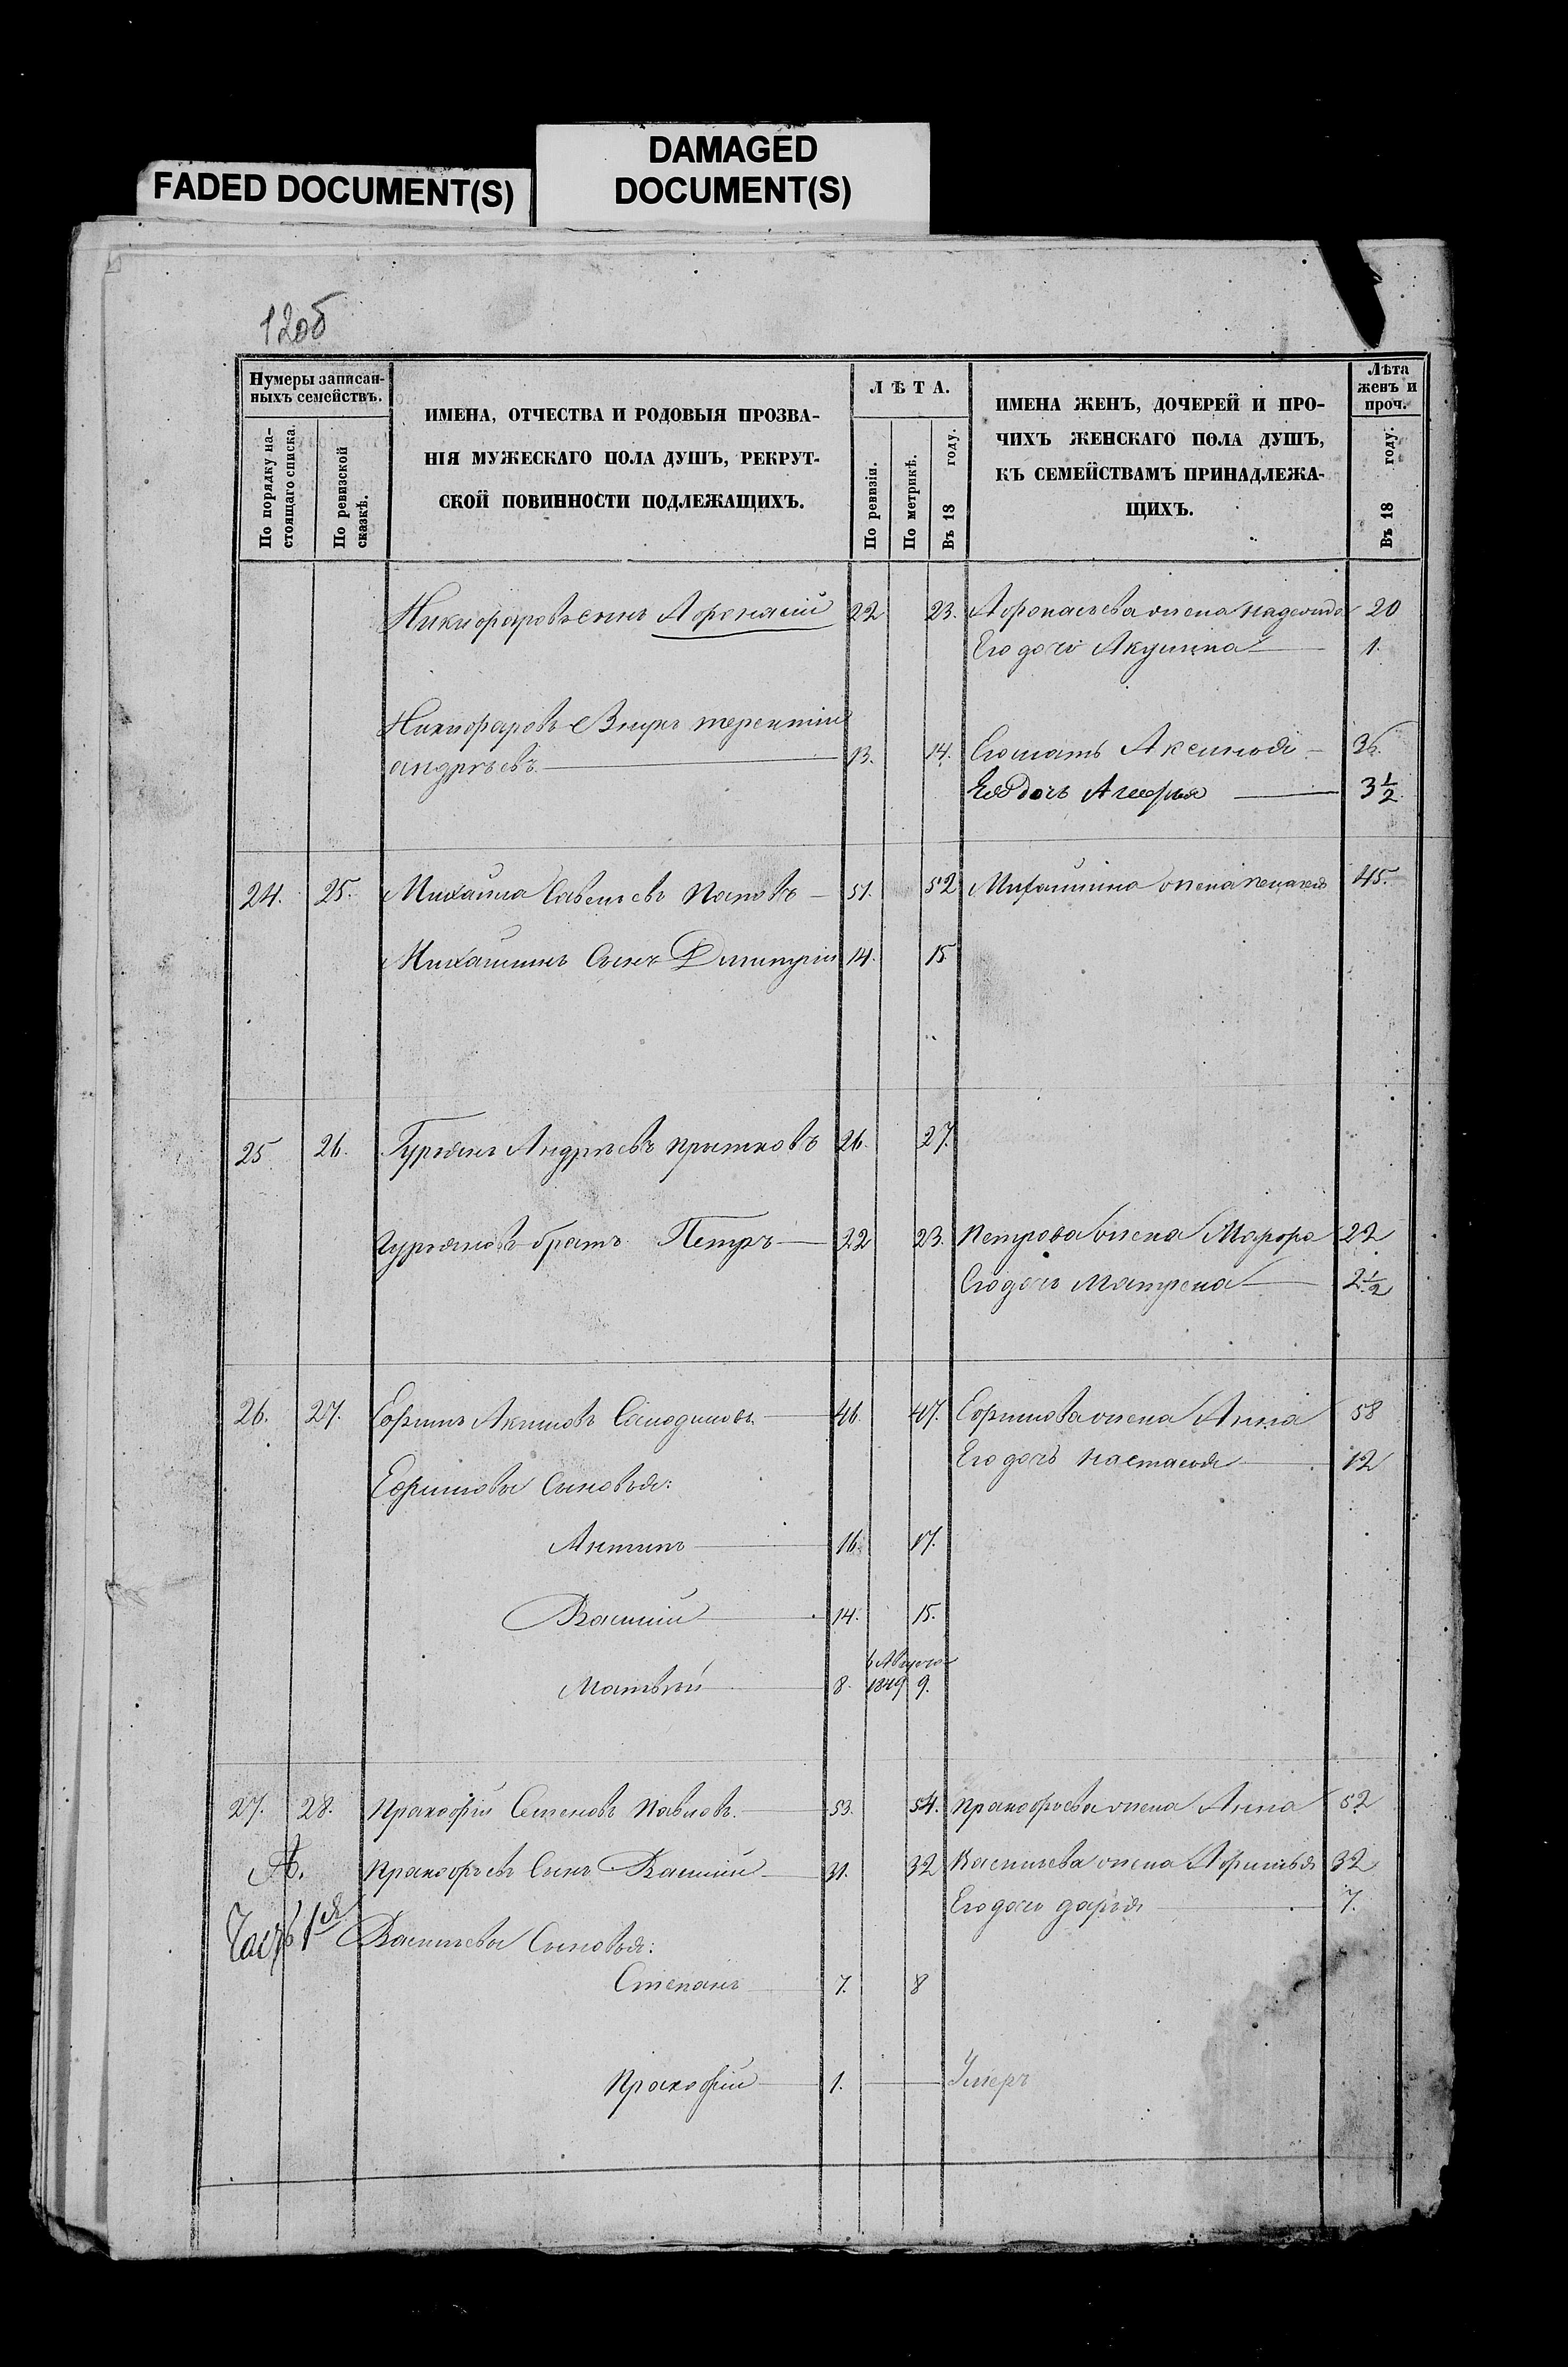 FADED DOCUMENT(S)
DAMAGED
DOCUMENT(S)
12об
Нумеры записан-
ныхъ семействъ.
По порядку на-
стоящаго списка.
По ревизской
сказкѣ.
ИМЕНА, ОТЧЕСТВА И РОДОВЫЯ ПРОЗВА-
НІЯ МУЖЕСКАГО ПОЛА ДУШЪ, РЕКРУТ-
СКОЙ ПОВИННОСТИ ПОДЛЕЖАЩИХЪ.
ЛѢТА.
По ревизіи.
По метрикѣ.
Въ 18 году.
ИМЕНА ЖЕНЪ, ДОЧЕРЕЙ И ПРО-
ЧИХЪ ЖЕНСКАГО ПОЛА ДУШЪ,
КЪ СЕМЕЙСТВАМЪ ПРИНАДЛЕЖА-
ЩИХЪ.
Лѣта
женъ и
проч.
Въ 18 году.
Никифаровъ сынъ Афонасій 22 23. Афонасьева жена надежда 20
Его дочь Акулина 1.
Никифаровъ Внукъ терентій
андрѣевъ 13. 14. Его мать Аксинья 36
Ея дочь 3 1/2
24. 25. Михайла Савельевъ Паповъ 51. 52 Михайлина жена пелагея 45.
Михайлинъ Сынъ Димитрій 14. 15
25 26. Гурьянъ Андрѣевъ 26. 27.
гурьяновъ братъ Петръ 22 23. Петрова жена Марфа 22
Его дочь Матрена 2 1/2
26. 27. Ефимъ Акимовъ 46. 47. Ефимова жена Анна 58
Его дочь настасья 12
Ефимовы Сыновья:
Антипъ 16. 17.
Василій 14. 15.
6 Августа
Матвѣй 8. 1849 9.
27. 28. Пракофій Семеновъ Павловъ 53. 54. Пракофьева жена Анна 52
Пракофьевъ Сынъ Василій 31. 32 Васильева жена Афимья 32
Его дочь дарья 7.
Часть 1ая
Васильевы Сыновья:
Степанъ 7. 8
Пракофій 1. Умеръ